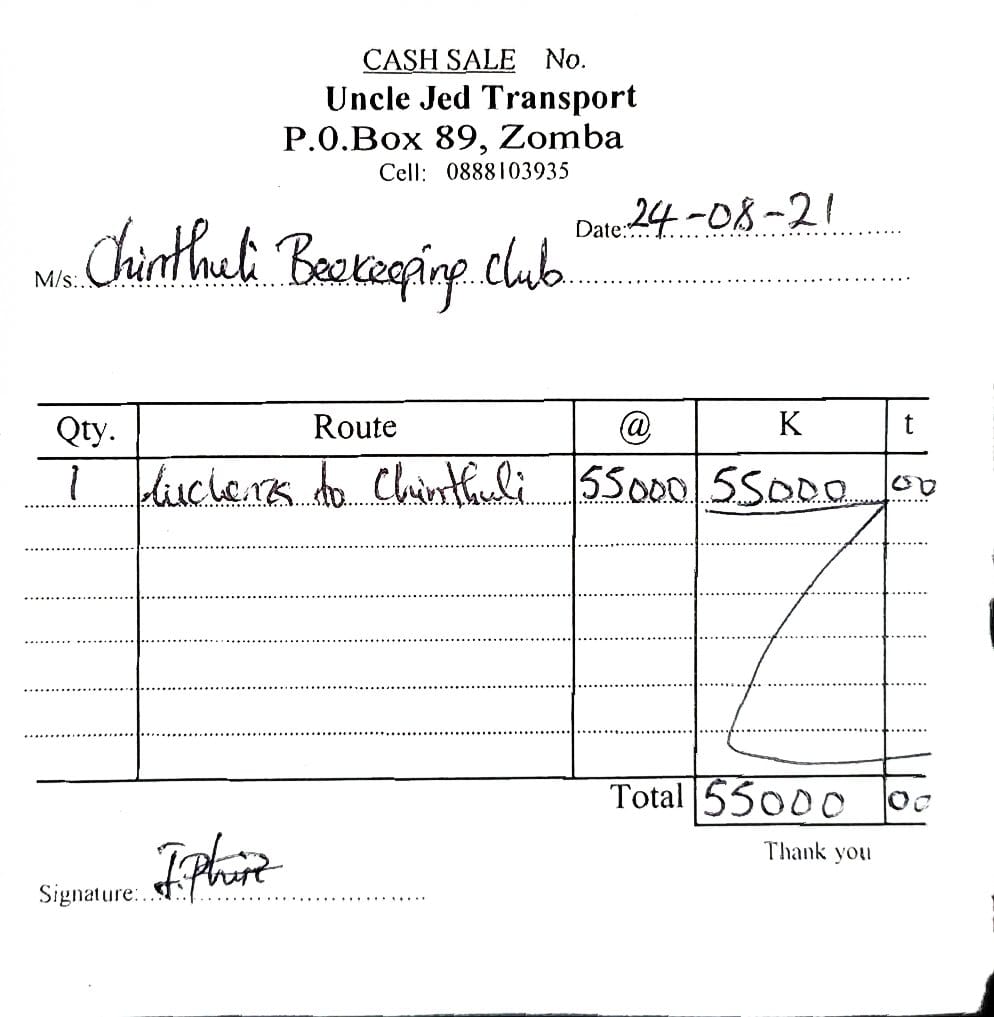 CASH SALE No.
Uncle Jed Transport
P.O.Box 89, Zomba
Cell: 0888103935
Date: 24-08-21
M/s: Chinthuli Beekeeping Club
Qty. Route @ K t
1 to Chinthuli 55000 55000 00
Total 55000 00
Thank you
Signature: J.Phiri